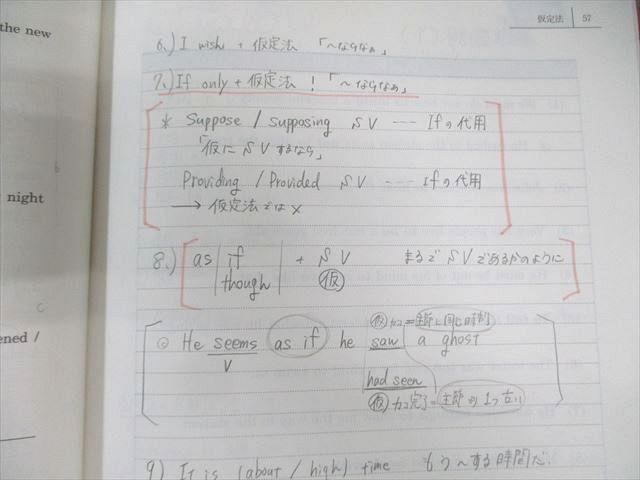 the new
仮定法 57
6.) I wish + 仮定法 「〜ならなぁ」
7.) If only + 仮定法 ! 「〜ならなぁ」
* Suppose / supposing SV --- Ifの代用
「仮に SVするなら」
Providing / Provided SV --- Ifの代用
night
→ 仮定法では×
8.) as if + SV まるでSVであるかのように
though 仮
仮 カコ = 主節と同じ時制
◎ He seems as if he saw a ghost
V
ened /
had seen
仮 カコ完了 = 主節の1つ古い
9) It is (about / high) time もう〜する時間だ.